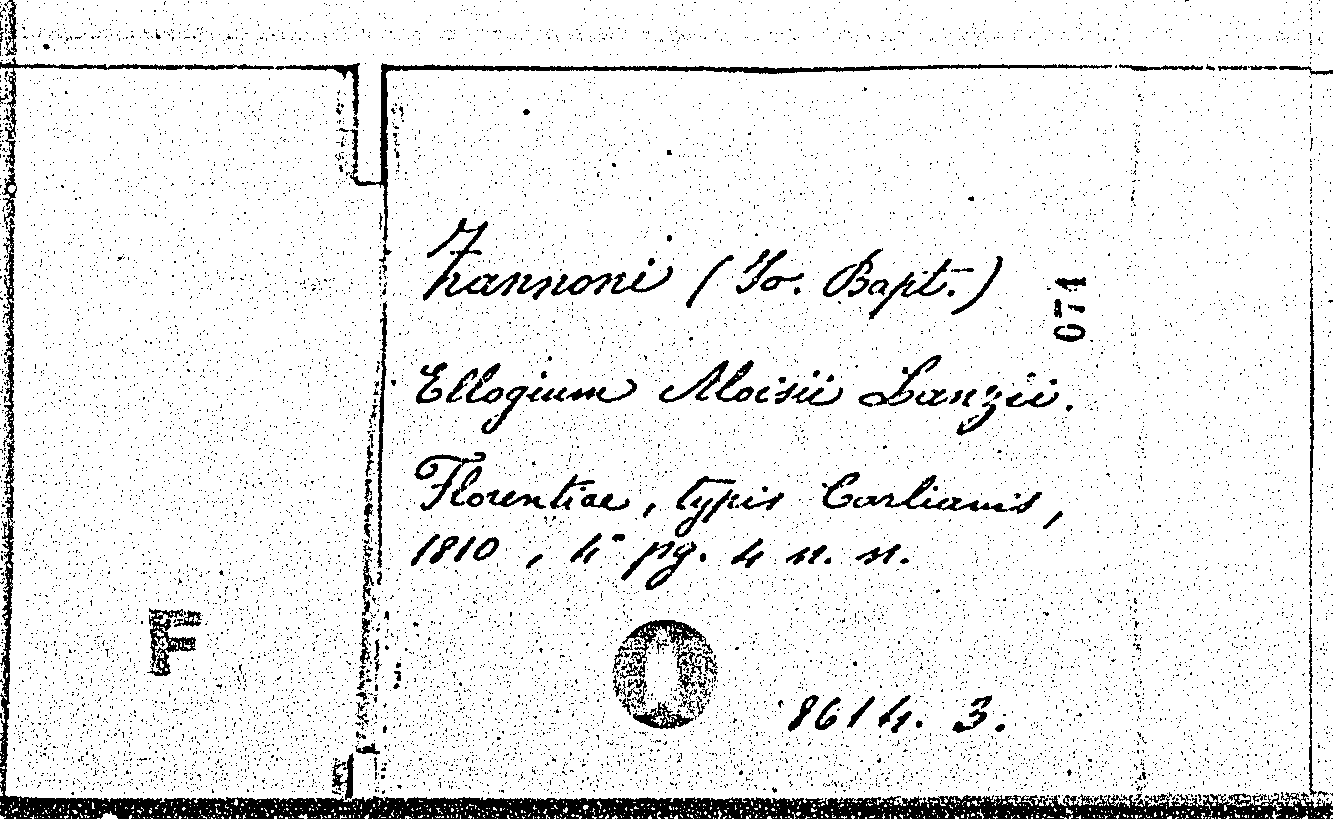 Zannoni (Jo. Bapt.)
071
Ellogium Aloisii Lanzii.
Florentiae, typis Carlianis,
1810, 4° pg. 4 n. n.
F
8614. 3.